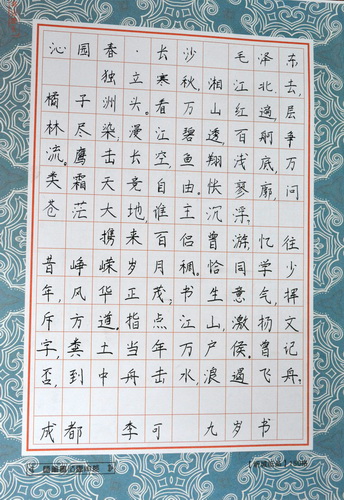 沁园春·长沙 毛泽东
独立寒秋,湘江北去,
橘子洲头。看万山红遍,层
林尽染,漫江碧透,百舸争
流。鹰击长空,鱼翔浅底,万
类霜天竞自由。怅寥廓,问
苍茫大地,谁主沉浮。
携来百侣曾游,忆往
昔峥嵘岁月稠。恰同学少
年,风华正茂;书生意气,挥
斥方遒。指点江山,激扬文
字,粪土当年万户侯。曾记
否,到中舟击水,浪遏飞舟。
成都 李可 九岁书